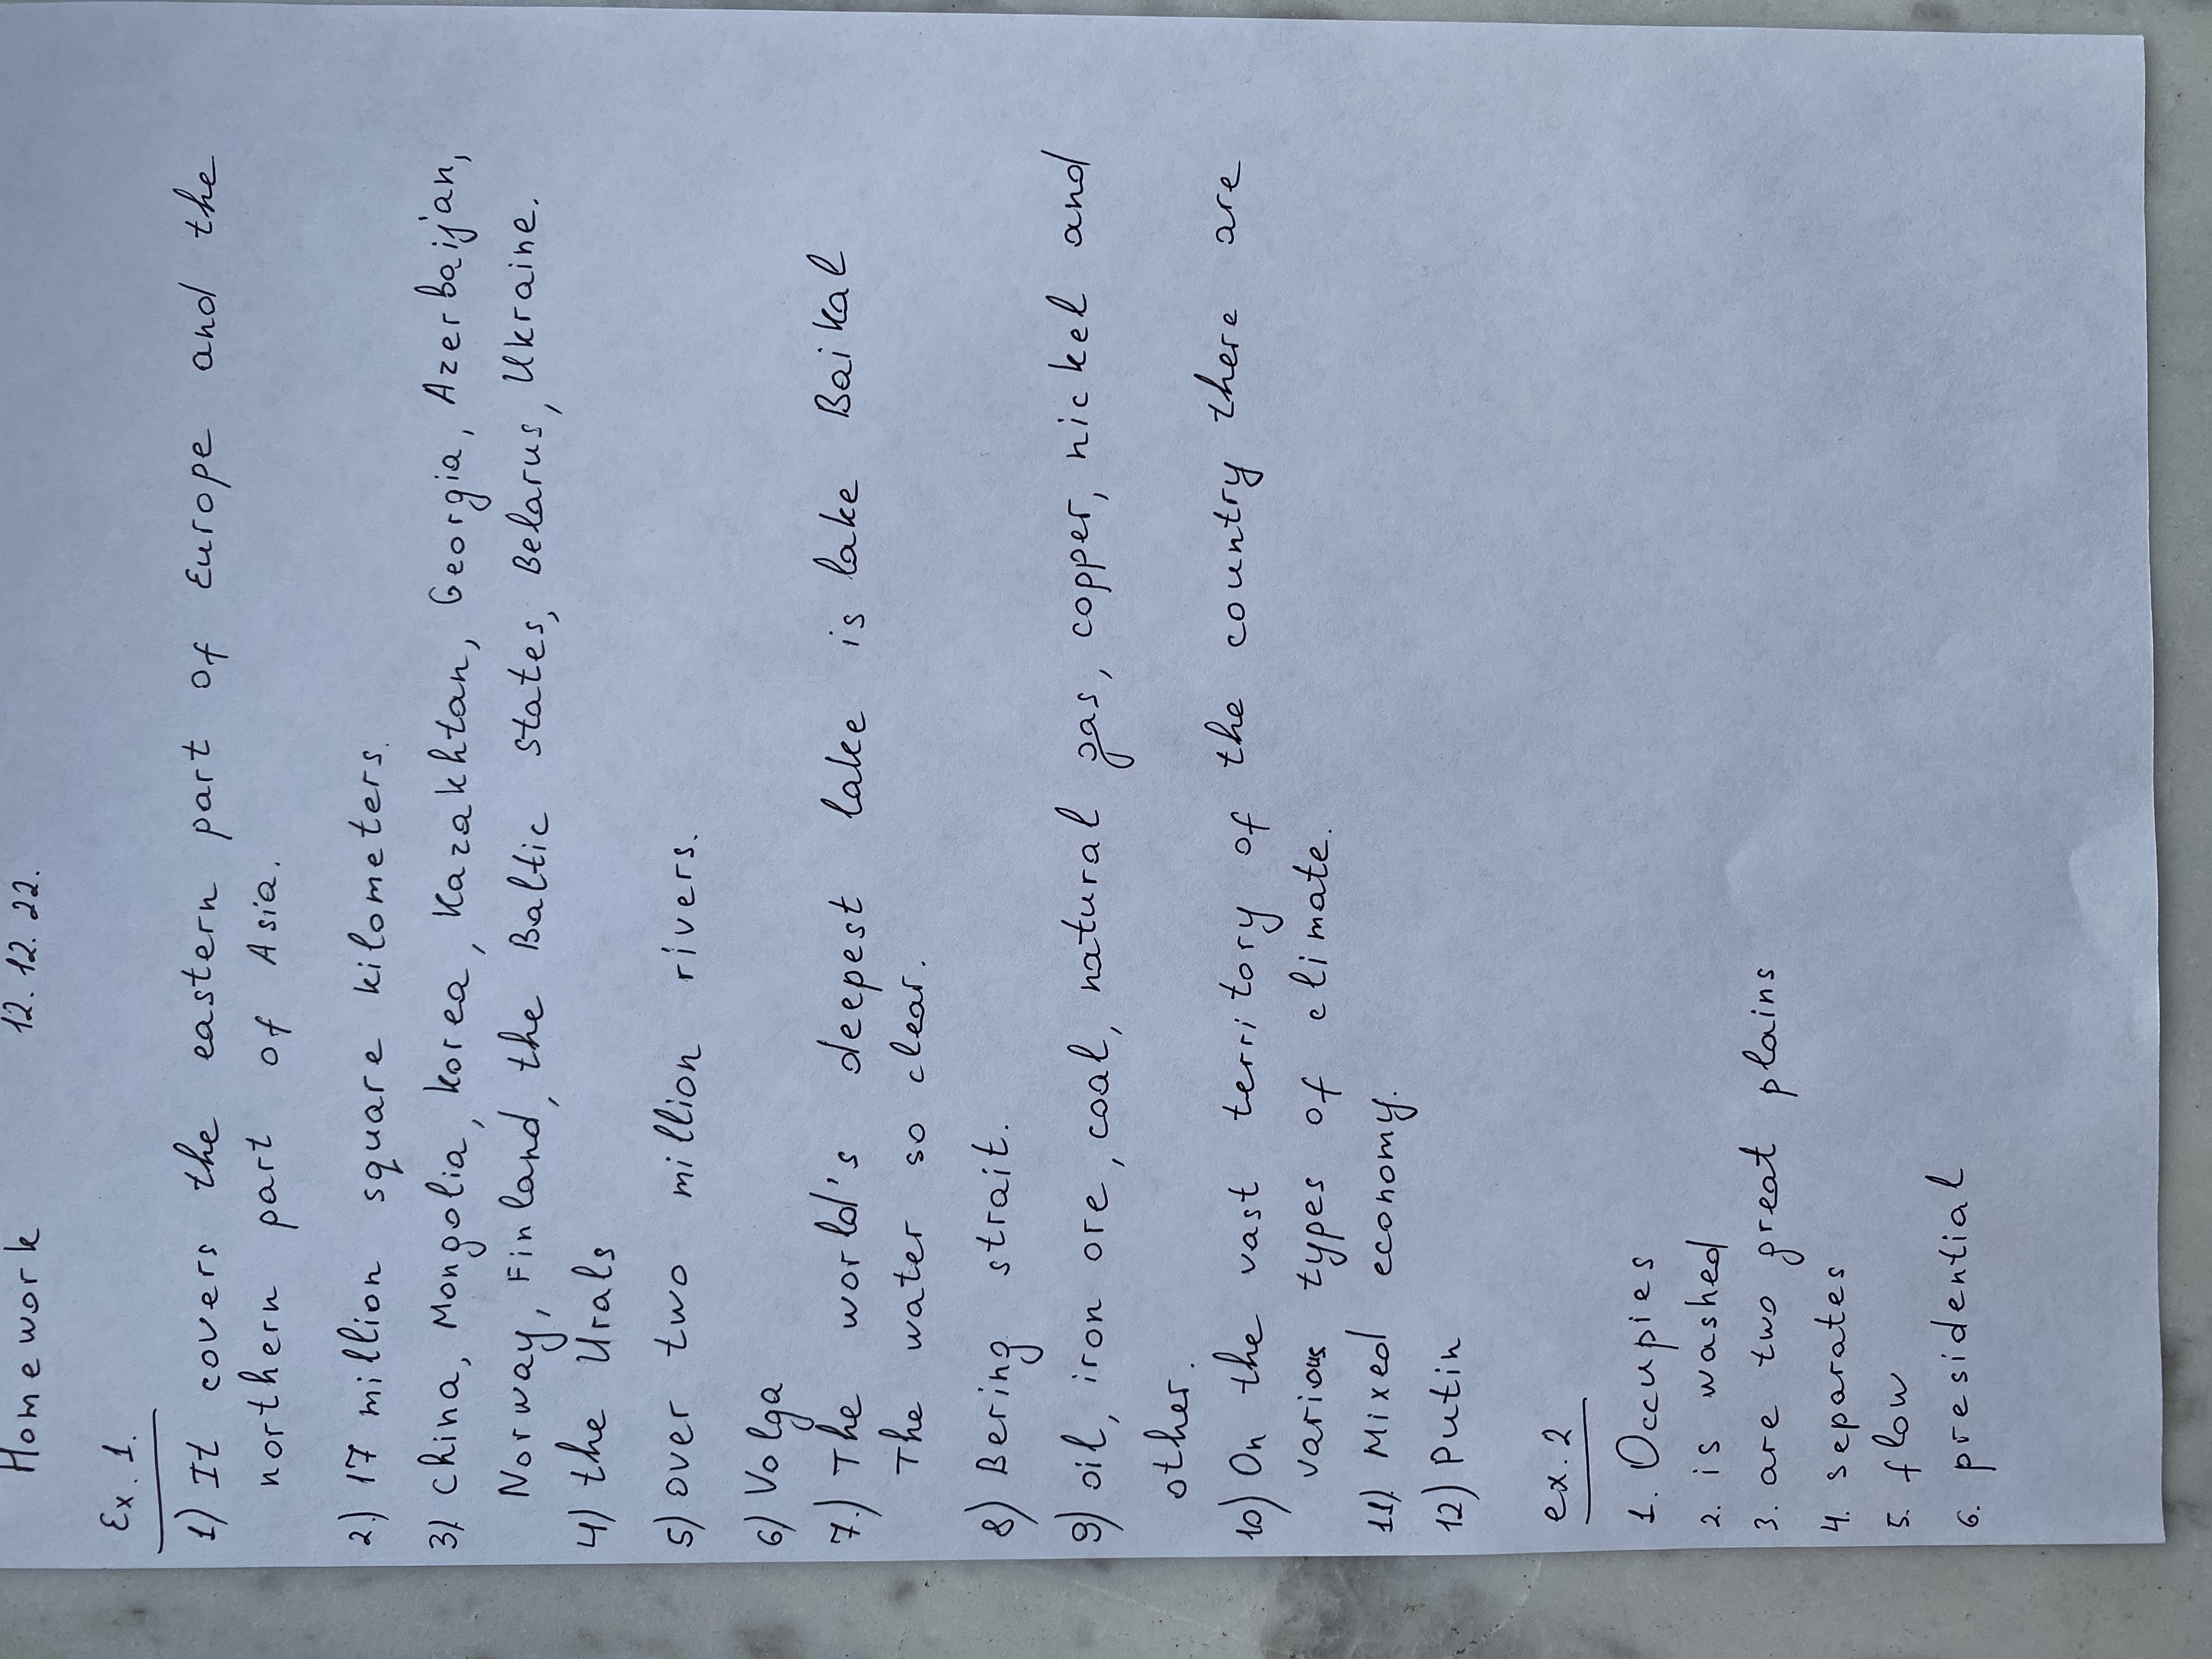 Homework 12.12.22.
Ex. 1.
1) It covers the eastern part of Europe and the
northern part of Asia.
2) 17 million square kilometers.
3) China, Mongolia, korea, Kazakhtan, Georgia, Azerbaijan,
Norway, Finland, the Baltic states, Belarus, Ukraine.
4) the Urals
5) over two million rivers.
6) Volga
7.) The world's deepest lake is lake Baikal
The water so clear.
8) Bering strait.
9) oil, iron ore, coal, natural gas, copper, nickel and
other.
10) On the vast territory of the country there are
various types of climate.
11) Mixed economy.
12) Putin
ex. 2
1. Occupies
2. is washed
3. are two great plains
4. separates
5. flow
6. presidential